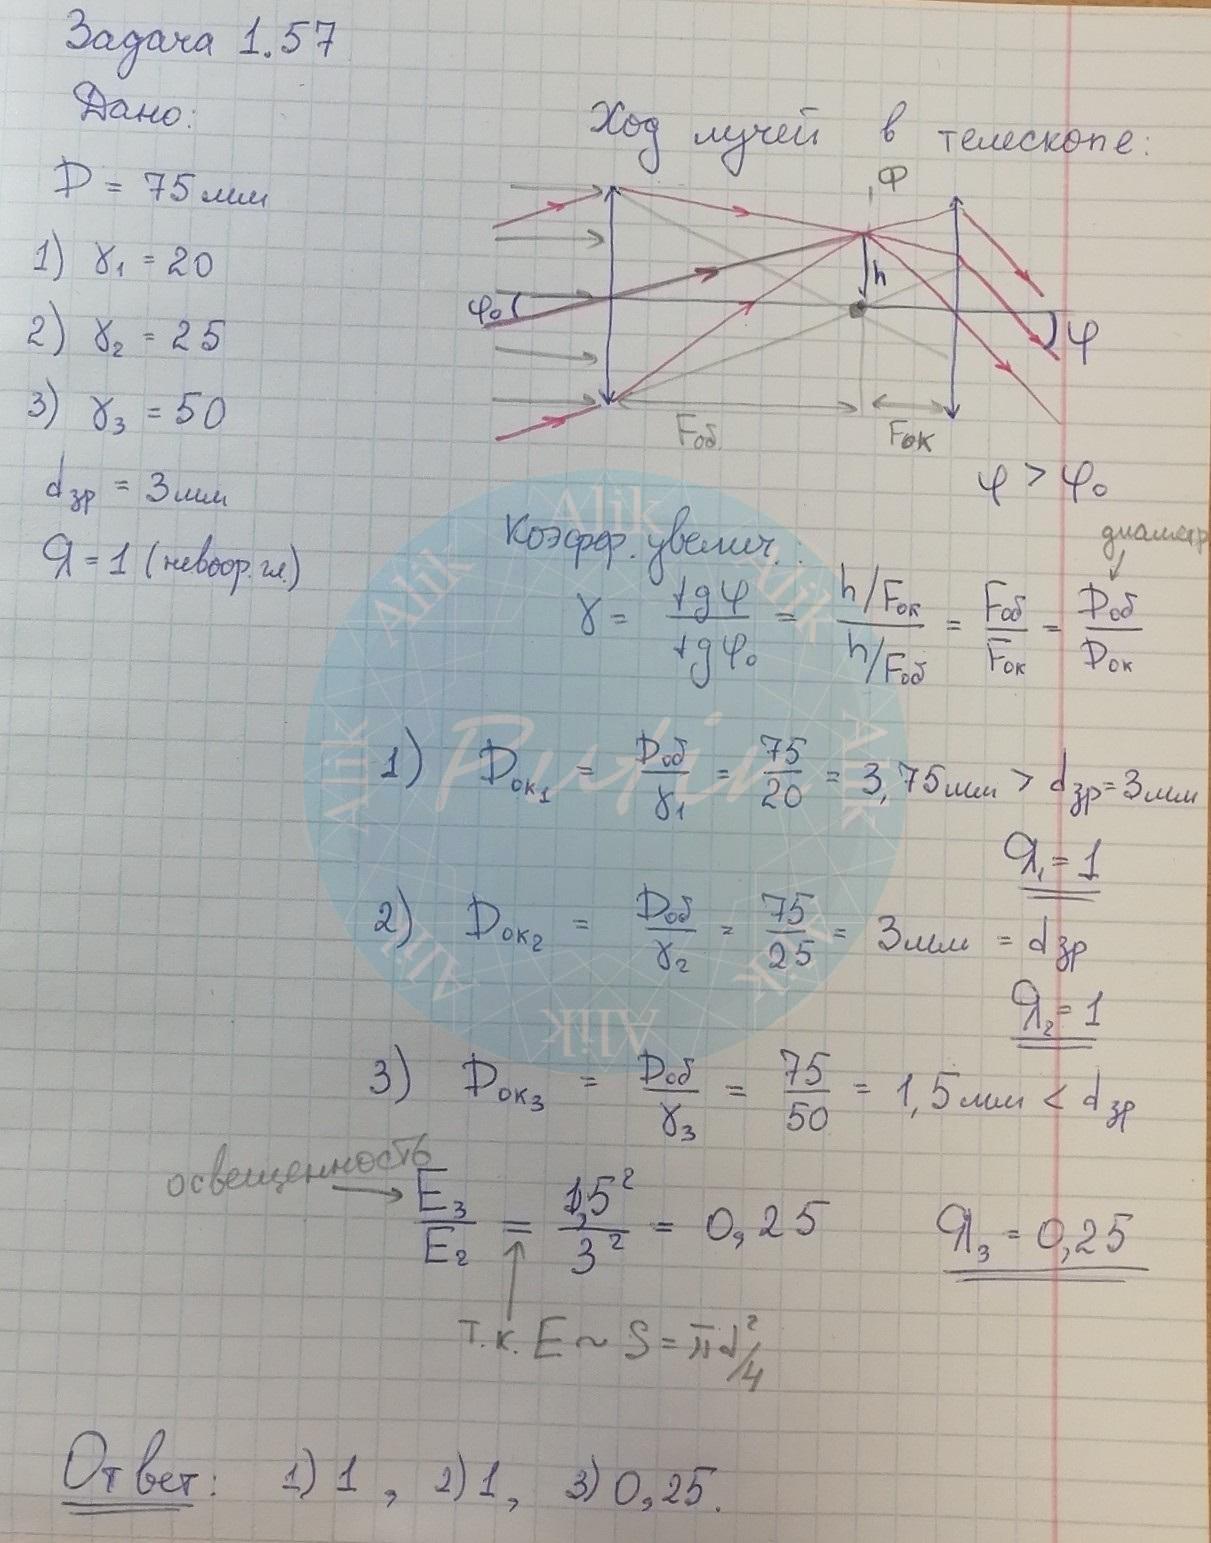 Задача 1.57
Дано:
D = 75 мм
1) γ₁ = 20
2) γ₂ = 25
3) γ₃ = 50
dзр = 3 мм
Я = 1 (невоор. гл.)
Ход лучей в телескопе:
Ф
h
φ₀
φ
Fоб.
Fок
φ > φ₀
диаметр
Коэфф. увелич.:
γ = tgφ / tgφ₀ = (h/Fок) / (h/Fоб) = Fоб / Fок = Dоб / Dок
1) Dок₁ = Dоб / γ₁ = 75 / 20 = 3,75 мм > dзр = 3 мм
Я₁ = 1
2) Dок₂ = Dоб / γ₂ = 75 / 25 = 3 мм = dзр
Я₂ = 1
3) Dок₃ = Dоб / γ₃ = 75 / 50 = 1,5 мм < dзр
освещенность
E₃ / E₂ = 1,5² / 3² = 0,25
Я₃ = 0,25
т.к. E ~ S = πd²/4
Ответ: 1) 1, 2) 1, 3) 0,25.
Alik
Alik
Alik
Alik
Alik
Alik
Alik
Alik
Alik
Alik
Putin